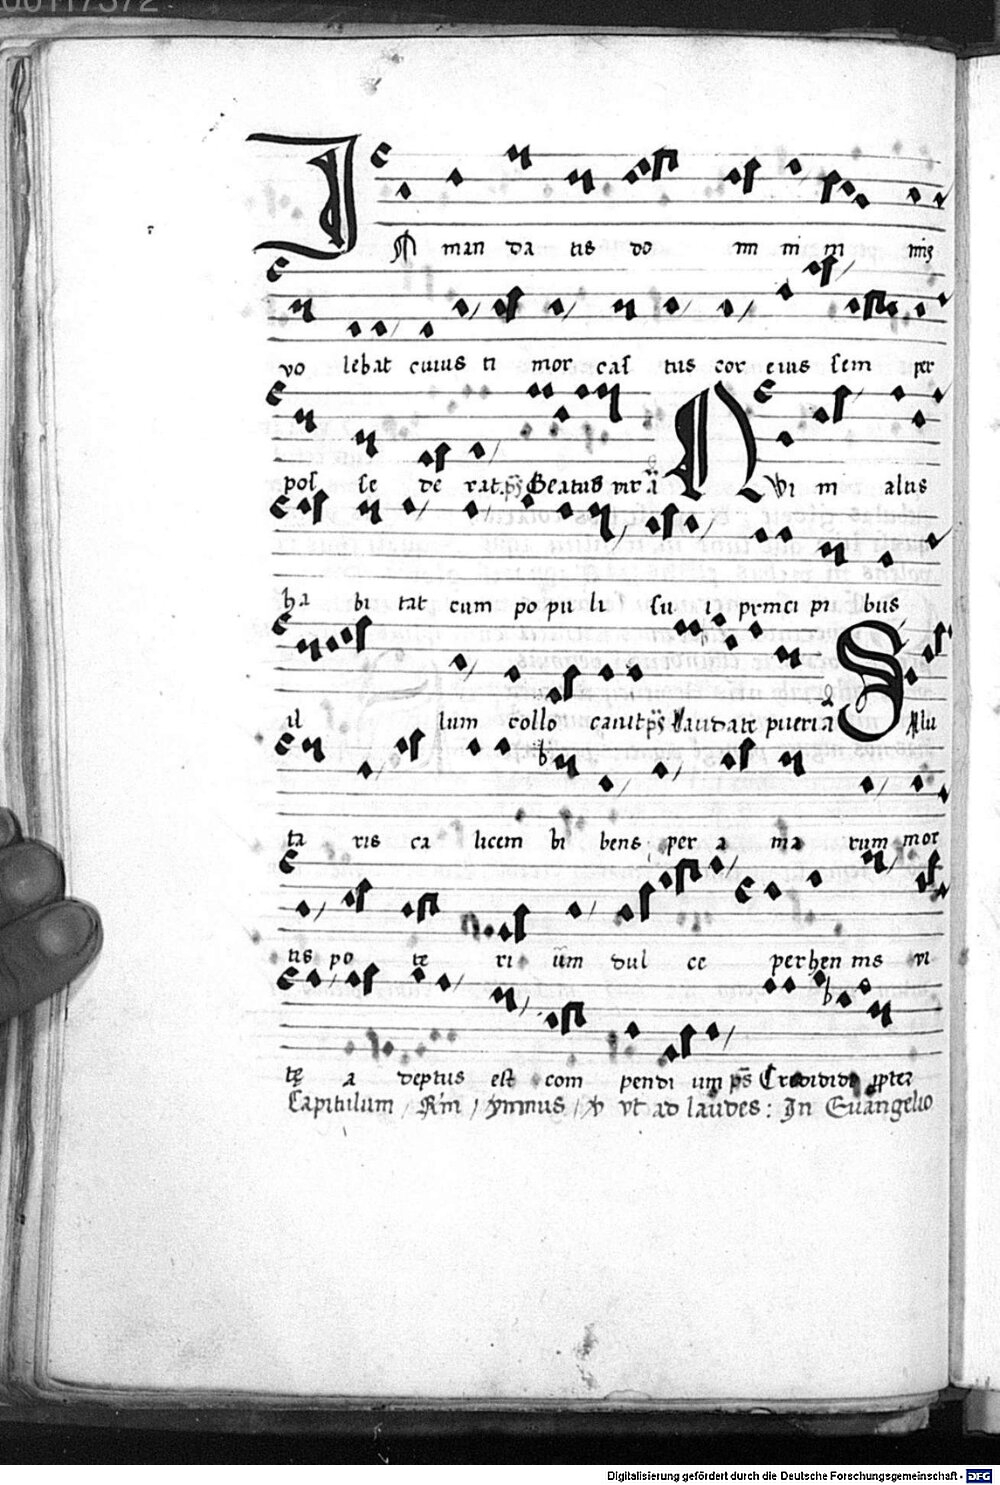 00117372
IN man da tis do mi ni ni nimis
vo lebat cuius ti mor cas tus cor eius sem per
pos se de rat. ps Beatus vir a QVi in altis
ha bi tat cum po pu li su i principi bus
il lum collo cavit ps Laudate pueri a SAlu
ta ris ca licem bi bens per a ma rum mor
tis po te ri um dul ce perhen nis vi
tę a deptus est com pendi um ps Credidi ppter
Capitulum / Rm / ymnus / v vt ad laudes : In Euangelio
Digitalisierung gefördert durch die Deutsche Forschungsgemeinschaft - DFG